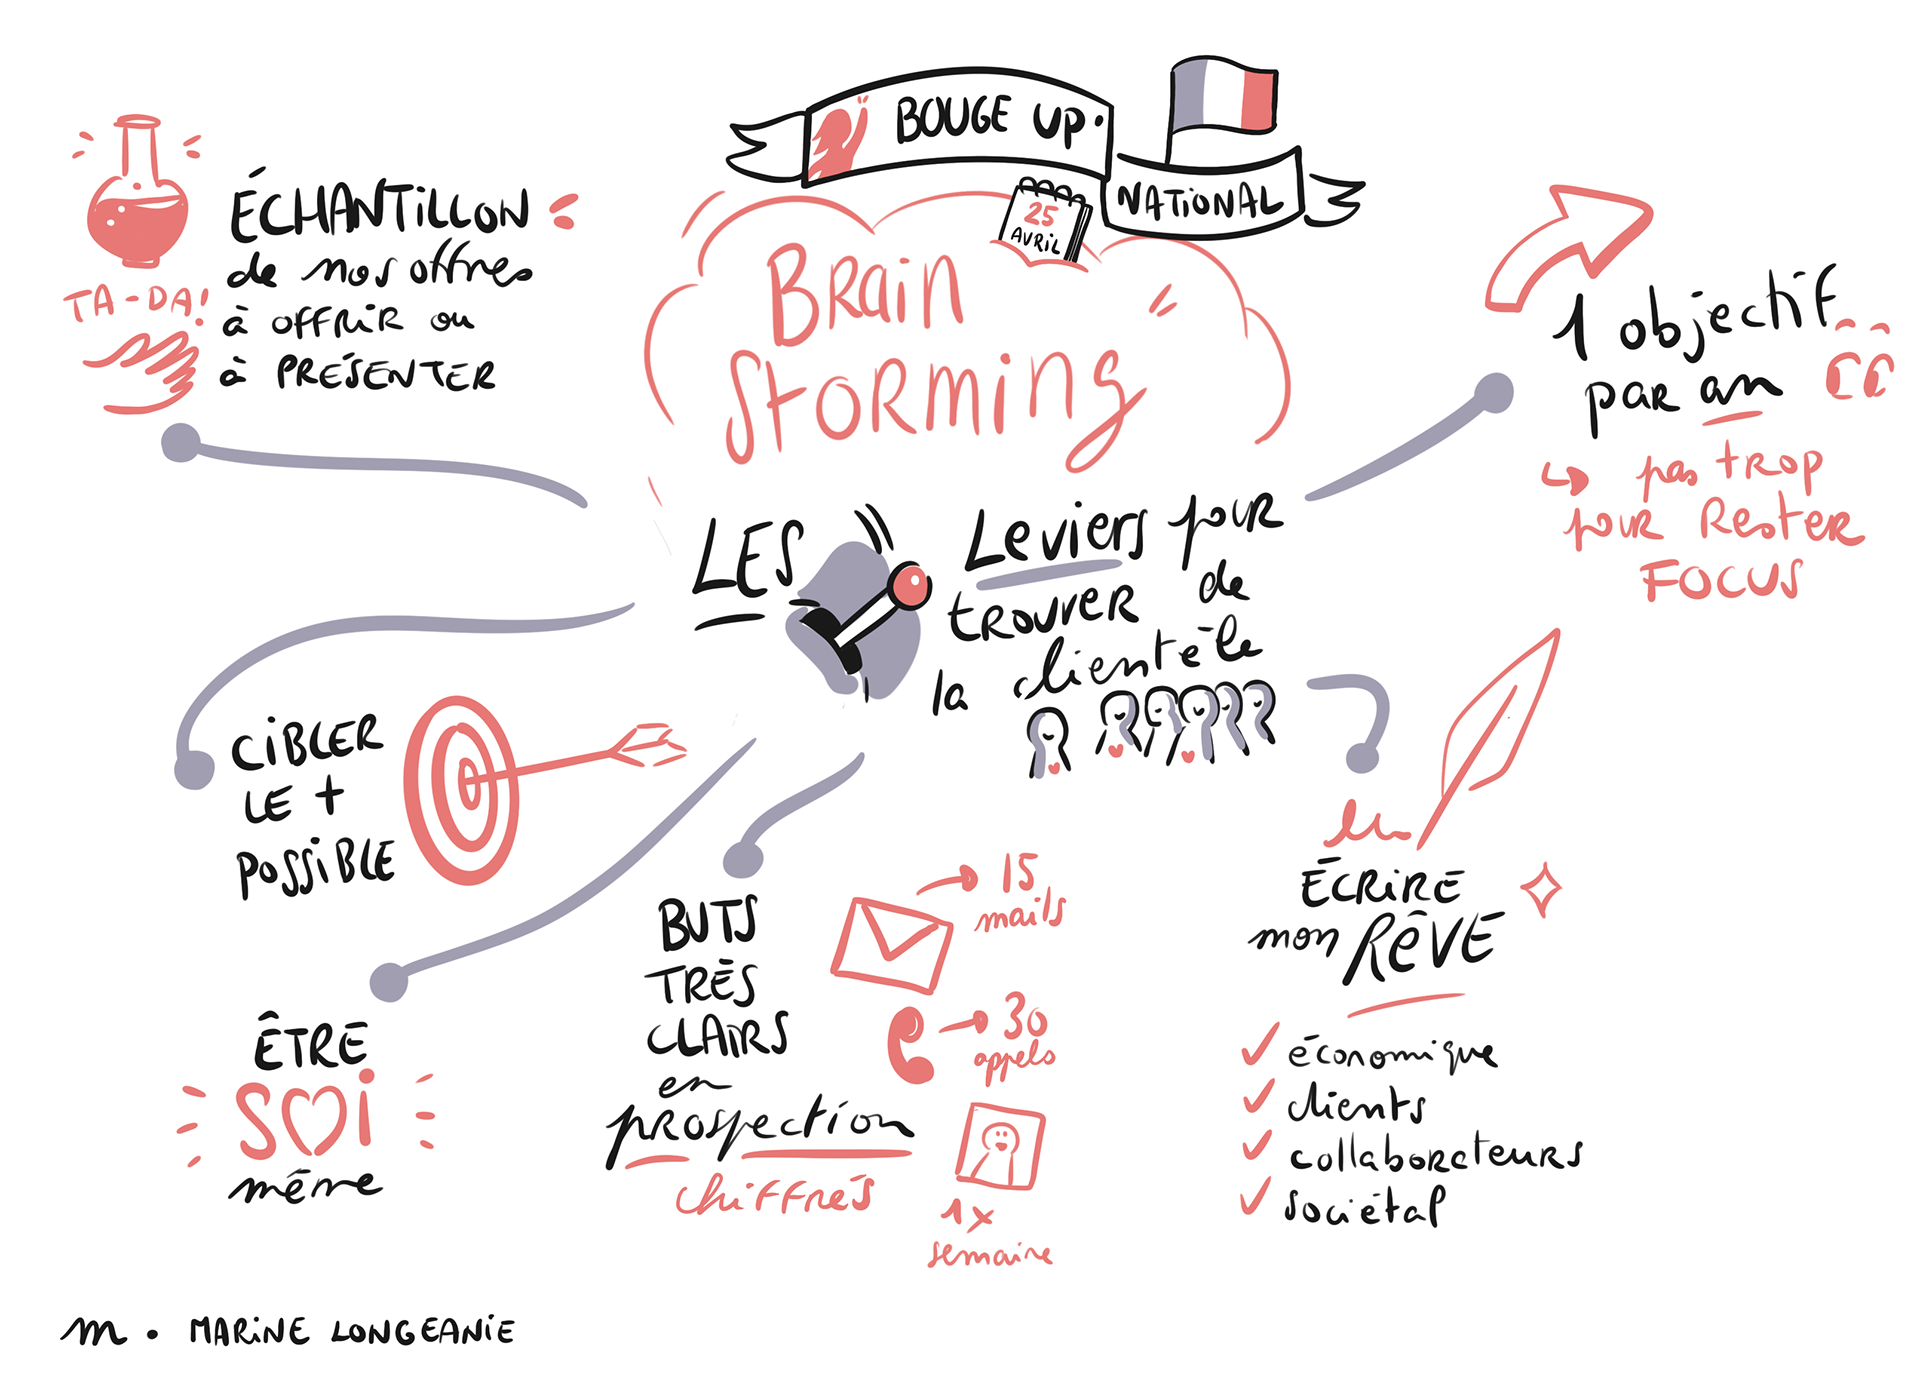 BOUGE UP.
NATIONAL
25
AVRIL
BRaiN
STORMING
LES
Leviers pour
TROUVER de
la clientèle
ÉCHANTILLON
de nos offres
à OFFRIR ou
à PRÉSENTER
TA-DA!
1 objectif
par an
pas trop
pour Rester
FOCUS
CIBLER
LE +
POSSIBLE
ÊTRE
SOi
même
BUTS
TRÈS
CLAIRS
en
prospection
chiffrés
15
mails
30
appels
1x
semaine
ÉCRIRE
mon RÊVE
économique
clients
collaborateurs
sociétal
m. MARINE LONGEANIE